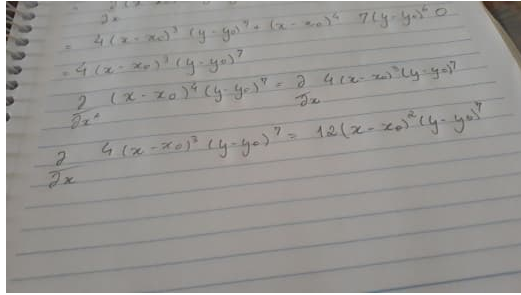 ∂x
= 4(x-x₀)³ (y-y₀)⁷ + (x-x₀)⁴ 7(y-y₀)⁶ 0
= 4(x-x₀)³ (y-y₀)⁷
∂/∂x² (x-x₀)⁴ (y-y₀)⁷ = ∂/∂x 4(x-x₀)³ (y-y₀)⁷
∂/∂x 4(x-x₀)³ (y-y₀)⁷ = 12(x-x₀)² (y-y₀)⁷